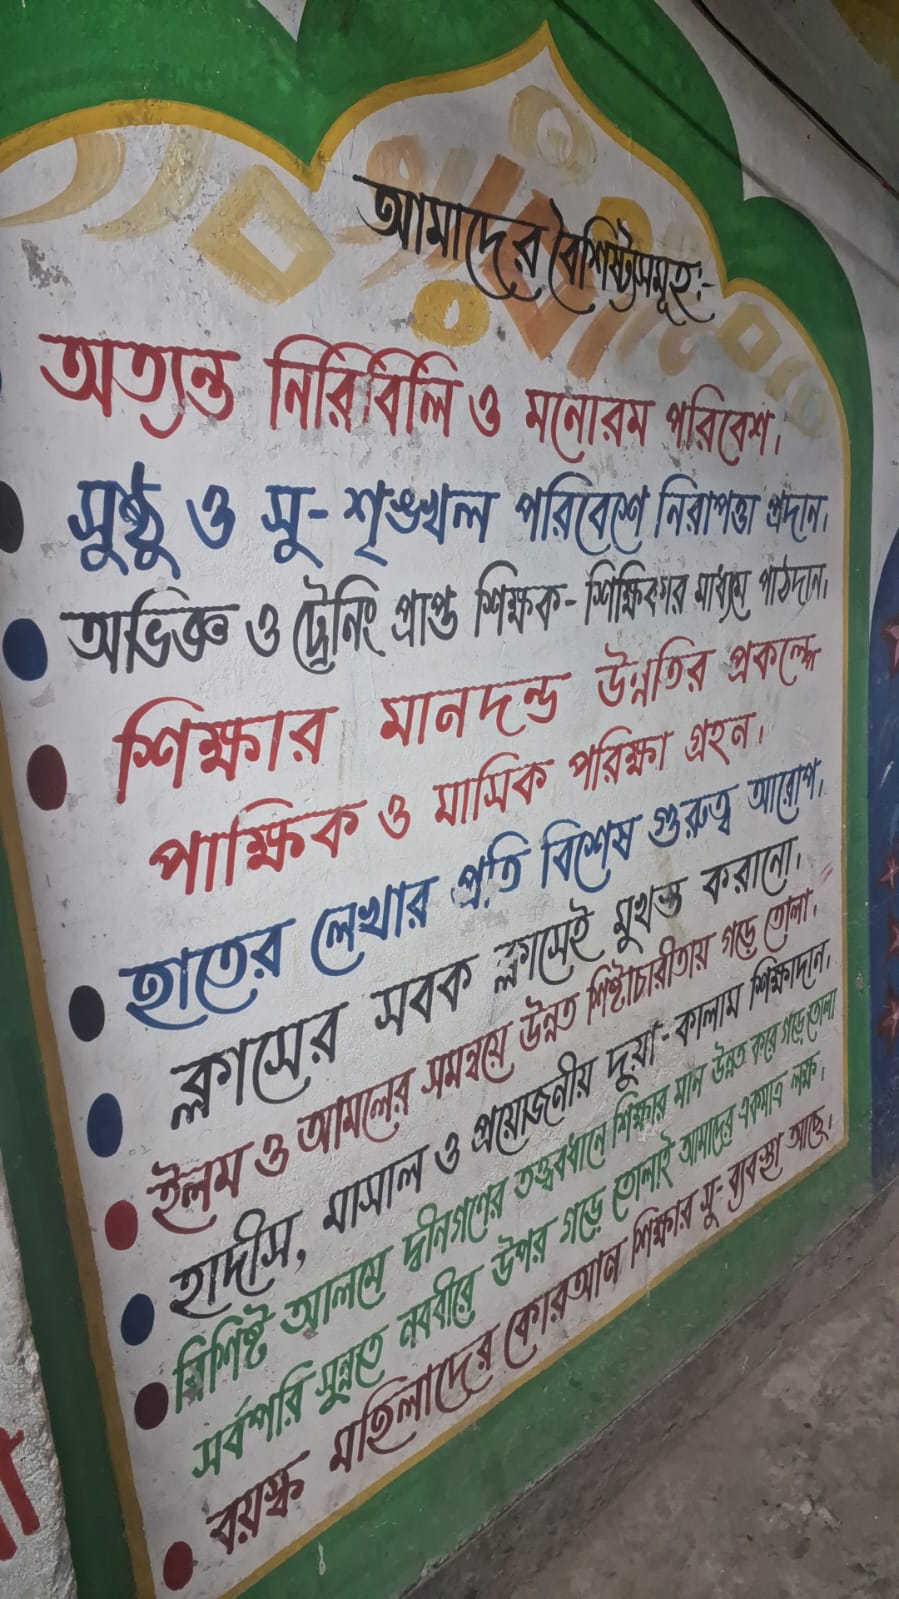 আমাদের বৈশিষ্ট্যসমূহ:-
অত্যন্ত নিরিবিলি ও মনোরম পরিবেশ।
সুষ্ঠু ও সু-শৃঙ্খল পরিবেশে নিরাপত্তা প্রদান।
অভিজ্ঞ ও ট্রেনিং প্রাপ্ত শিক্ষক-শিক্ষিকার মাধ্যমে পাঠদান।
শিক্ষার মানদন্ড উন্নতির প্রকল্পে
পাক্ষিক ও মাসিক পরিক্ষা গ্রহন।
হাতের লেখার প্রতি বিশেষ গুরুত্ব আরোপ।
ক্লাসের সবক ক্লাসেই মুখস্ত করানো।
ইলম ও আমলের সমন্বয়ে উন্নত শিষ্টাচারীতায় গড়ে তোলা।
হাদীস, মাসাল ও প্রয়োজনীয় দুয়া-কালাম শিক্ষাদান।
বিশিষ্ট আলমে দ্বীনগণের তত্ত্ববধানে শিক্ষার মান উন্নত করে গড়ে তোলা
সর্বপরি সুন্নতে নববীরে উপর গড়ে তোলাই আমাদের একমাত্র লক্ষ।
বয়স্ক মহিলাদের কোরআন শিক্ষার সু-ব্যবস্থা আছে।